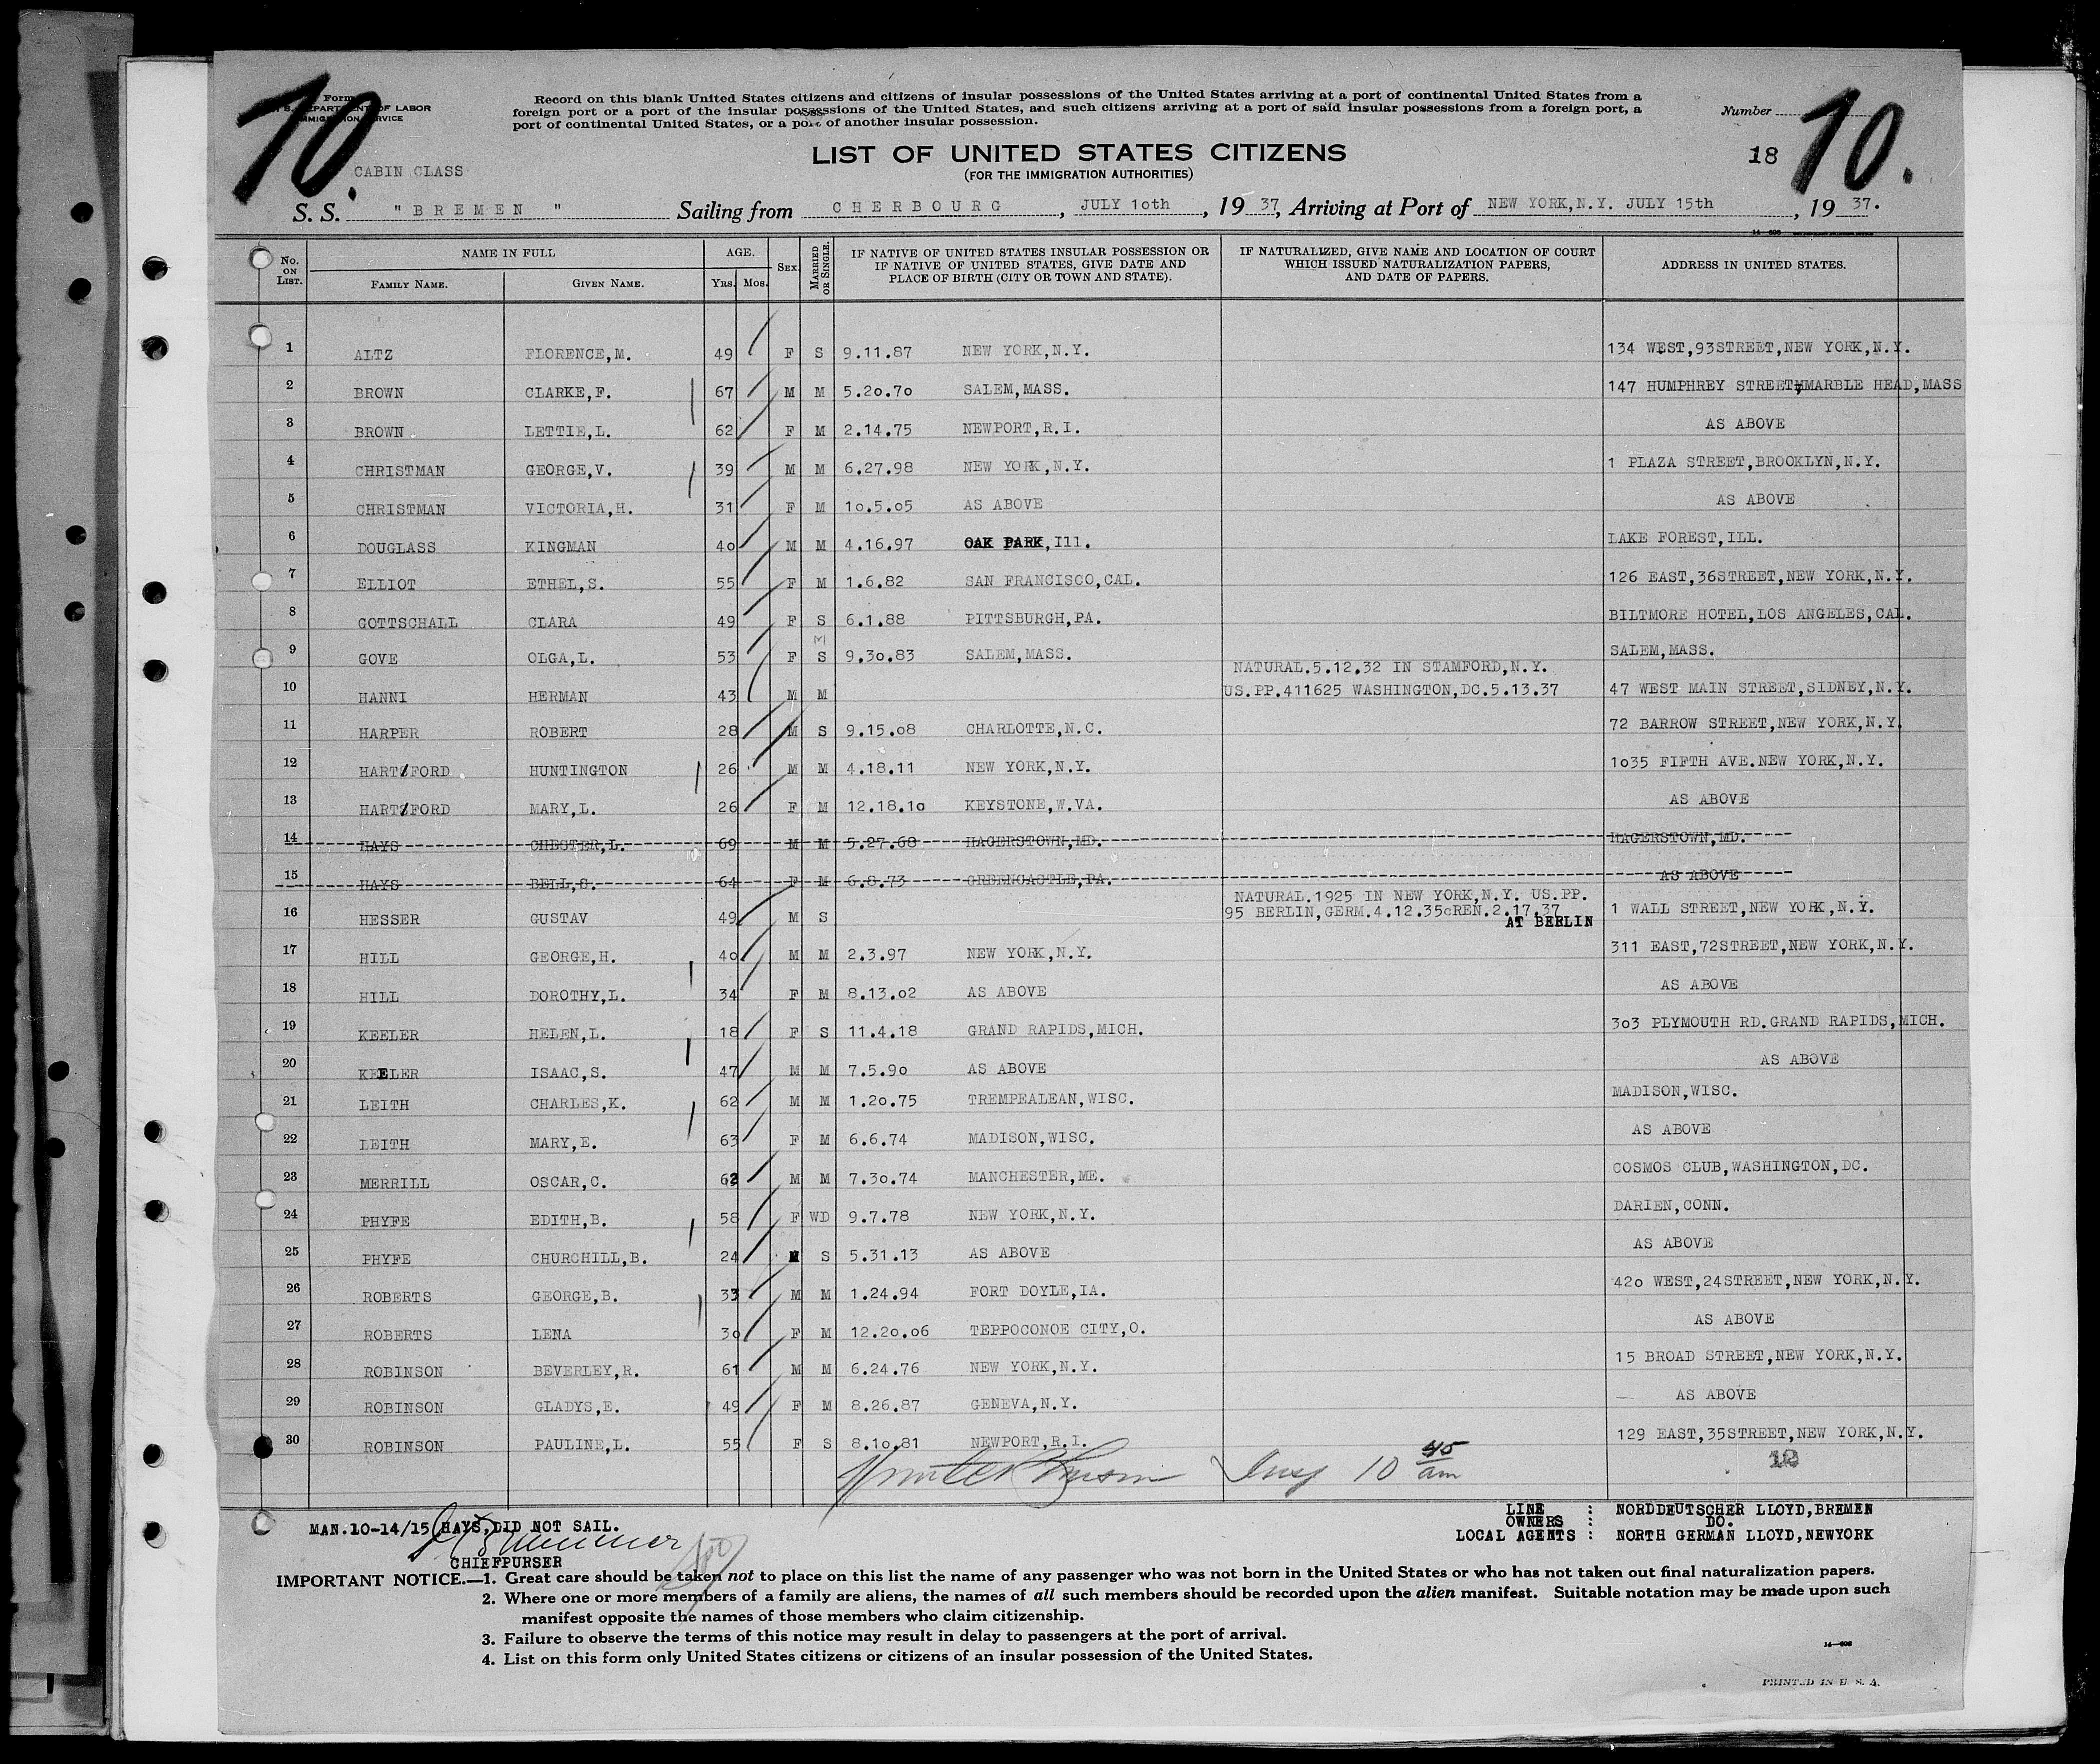 10.
Form
U. S. DEPARTMENT OF LABOR
IMMIGRATION SERVICE
Record on this blank United States citizens and citizens of insular possessions of the United States arriving at a port of continental United States from a
foreign port or a port of the insular possessions of the United States, and such citizens arriving at a port of said insular possessions from a foreign port, a
port of continental United States, or a port of another insular possession.
Number
10.
LIST OF UNITED STATES CITIZENS
18
(FOR THE IMMIGRATION AUTHORITIES)
CABIN CLASS
S. S. "BREMEN " Sailing from CHERBOURG, JULY 10th, 1937, Arriving at Port of NEW YORK,N.Y. JULY 15th, 1937.
No. ON LIST. NAME IN FULL FAMILY NAME. GIVEN NAME. AGE. YRS. MOS. SEX. MARRIED OR SINGLE. IF NATIVE OF UNITED STATES INSULAR POSSESSION OR IF NATIVE OF UNITED STATES, GIVE DATE AND PLACE OF BIRTH (CITY OR TOWN AND STATE). IF NATURALIZED, GIVE NAME AND LOCATION OF COURT WHICH ISSUED NATURALIZATION PAPERS, AND DATE OF PAPERS. ADDRESS IN UNITED STATES.
1 ALTZ FLORENCE,M. 49 F S 9.11.87 NEW YORK,N.Y. 134 WEST,93STREET,NEW YORK,N.Y.
2 BROWN CLARKE,F. 67 M M 5.20.70 SALEM,MASS. 147 HUMPHREY STREET,MARBLE HEAD,MASS
3 BROWN LETTIE,L. 62 F M 2.14.75 NEWPORT,R.I. AS ABOVE
4 CHRISTMAN GEORGE,V. 39 M M 6.27.98 NEW YORK,N.Y. 1 PLAZA STREET,BROOKLYN,N.Y.
5 CHRISTMAN VICTORIA,H. 31 F M 10.5.05 AS ABOVE AS ABOVE
6 DOUGLASS KINGMAN 40 M M 4.16.97 OAK PARK,Ill. LAKE FOREST,ILL.
7 ELLIOT ETHEL,S. 55 F M 1.6.82 SAN FRANCISCO,CAL. 126 EAST,36STREET,NEW YORK,N.Y.
8 GOTTSCHALL CLARA 49 F S 6.1.88 PITTSBURGH,PA. BILTMORE HOTEL,LOS ANGELES,CAL.
9 GOVE OLGA,L. 53 F S 9.30.83 SALEM,MASS. SALEM,MASS.
NATURAL.5.12.32 IN STAMFORD,N.Y.
10 HANNI HERMAN 43 M M US.PP.411625 WASHINGTON,DC.5.13.37 47 WEST MAIN STREET,SIDNEY,N.Y.
11 HARPER ROBERT 28 M S 9.15.08 CHARLOTTE,N.C. 72 BARROW STREET,NEW YORK,N.Y.
12 HARTFORD HUNTINGTON 26 M M 4.18.11 NEW YORK,N.Y. 1035 FIFTH AVE.NEW YORK,N.Y.
13 HARTFORD MARY,L. 26 F M 12.18.10 KEYSTONE,W.VA. AS ABOVE
14 HAYS CHESTER,L. 69 M M 5.27.68 HAGERSTOWN,MD. HAGERSTOWN,MD.
15 HAYS BELL,S. 64 F M 6.8.73 GREENCASTLE,PA. AS ABOVE
NATURAL.1925 IN NEW YORK,N.Y. US.PP.
16 HESSER GUSTAV 49 M S 95 BERLIN,GERM.4.12.35cREN.2.17.37 1 WALL STREET,NEW YORK,N.Y.
AT BERLIN
17 HILL GEORGE,H. 40 M M 2.3.97 NEW YORK,N.Y. 311 EAST,72STREET,NEW YORK,N.Y.
18 HILL DOROTHY,L. 34 F M 8.13.02 AS ABOVE AS ABOVE
19 KEELER HELEN,L. 18 F S 11.4.18 GRAND RAPIDS,MICH. 303 PLYMOUTH RD.GRAND RAPIDS,MICH.
20 KEELER ISAAC,S. 47 M M 7.5.90 AS ABOVE AS ABOVE
21 LEITH CHARLES,K. 62 M M 1.20.75 TREMPEALEAN,WISC. MADISON,WISC.
22 LEITH MARY,E. 63 F M 6.6.74 MADISON,WISC. AS ABOVE
23 MERRILL OSCAR,C. 62 M M 7.30.74 MANCHESTER,ME. COSMOS CLUB,WASHINGTON,DC.
24 PHYFE EDITH,B. 58 F WD 9.7.78 NEW YORK,N.Y. DARIEN,CONN.
25 PHYFE CHURCHILL,B. 24 M S 5.31.13 AS ABOVE AS ABOVE
26 ROBERTS GEORGE,B. 33 M M 1.24.94 FORT DOYLE,IA. 420 WEST,24STREET,NEW YORK,N.Y.
27 ROBERTS LENA 30 F M 12.20.06 TEPPOCONOE CITY,O. AS ABOVE
28 ROBINSON BEVERLEY,R. 61 M M 6.24.76 NEW YORK,N.Y. 15 BROAD STREET,NEW YORK,N.Y.
29 ROBINSON GLADYS,E. 49 F M 8.26.87 GENEVA,N.Y. AS ABOVE
30 ROBINSON PAULINE,L. 55 F S 8.10.81 NEWPORT,R.I. 129 EAST,35STREET,NEW YORK,N.Y.
Insp 10 45 am
12
MAN.10-14/15 HAYS,DID NOT SAIL.
CHIEFPURSER
LINE : NORDDEUTSCHER LLOYD,BREMEN
OWNERS : DO.
LOCAL AGENTS : NORTH GERMAN LLOYD,NEWYORK
IMPORTANT NOTICE.—1. Great care should be taken not to place on this list the name of any passenger who was not born in the United States or who has not taken out final naturalization papers.
2. Where one or more members of a family are aliens, the names of all such members should be recorded upon the alien manifest. Suitable notation may be made upon such
manifest opposite the names of those members who claim citizenship.
3. Failure to observe the terms of this notice may result in delay to passengers at the port of arrival.
4. List on this form only United States citizens or citizens of an insular possession of the United States.
PRINTED IN U. S. A.